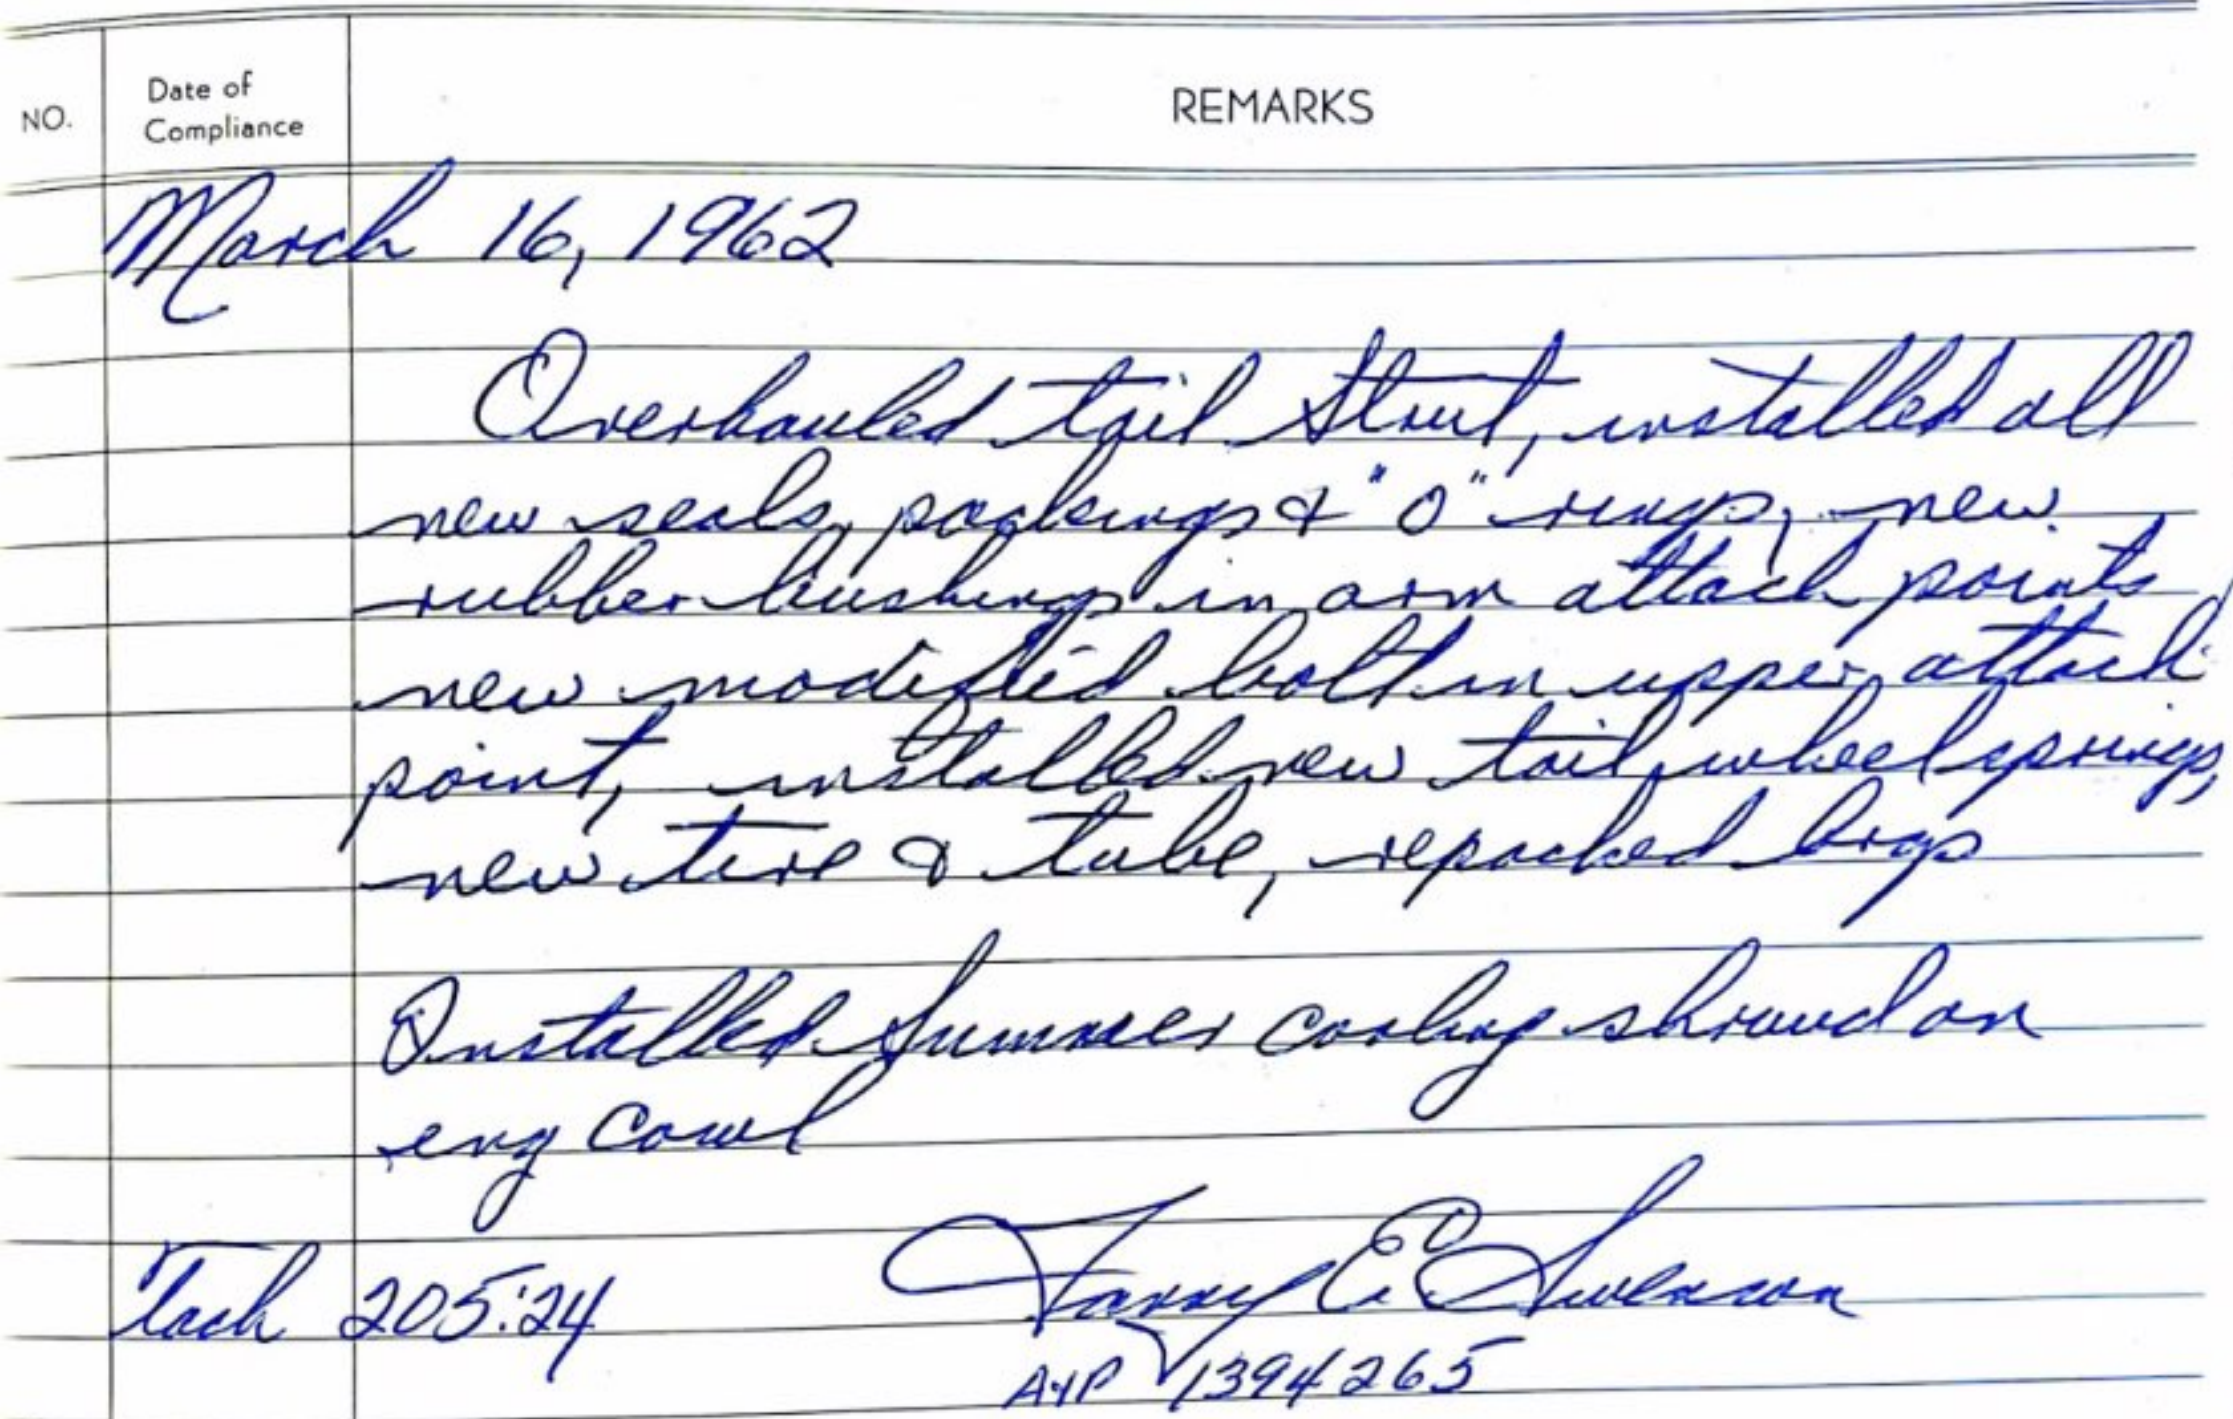 NO.
Date of
Compliance
REMARKS
March 16, 1962
Overhauled tail Strut, installed all
new seals, packings & "O" rings, new
rubber bushings in arm attach points
new modified bolt in upper attach
point, installed new tail wheel springs,
new tire & tube, repacked brgs
Installed Summer cooling shroud on
eng cowl
Tach 205:24
E. Swenson
A&P 1394265